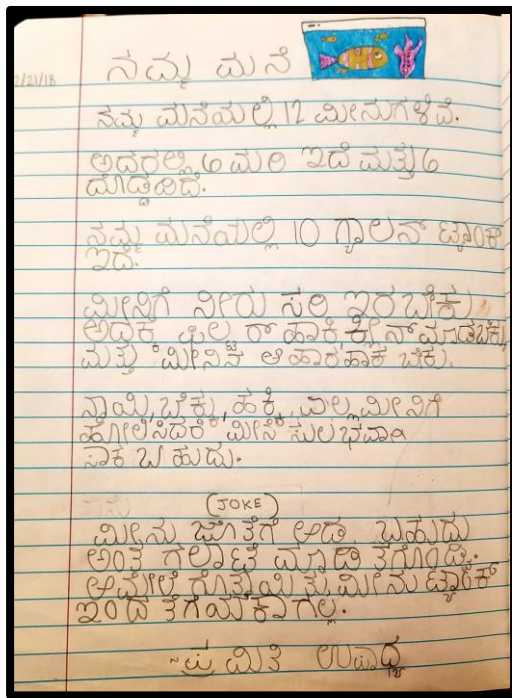 ನಮ್ಮ ಮನೆ
2/21/18
ನಮ್ಮ ಮನೆಯಲ್ಲಿ 12 ಮೀನುಗಳಿವೆ.
ಅದರಲ್ಲಿ 6 ಮರಿ ಇದೆ ಮತ್ತು 6
ದೊಡ್ಡದಿದೆ.
ನಮ್ಮ ಮನೆಯಲ್ಲಿ 10 ಗ್ಯಾಲನ್ ಟ್ಯಾಂಕ್
ಇದೆ.
ಮೀನಿಗೆ ನೀರು ಸರಿ ಇರಬೇಕು
ಅದಕ್ಕೆ ಫಿಲ್ಟರ್ ಹಾಕಿ ಕ್ಲೀನ್ ಮಾಡಬೇಕು
ಮತ್ತು ಮೀನಿನ ಆಹಾರ ಹಾಕ ಬೇಕು.
ನಾಯಿ, ಬೆಕ್ಕು, ಹಕ್ಕಿ, ಎಲ್ಲ ಮೀನಿಗೆ
ಹೋಲಿಸಿದರೆ ಮೀನೆ ಸುಲಭವಾಗಿ
ಸಾಕ ಬಹುದು.
(JOKE)
ಮೀನು ಜೊತೆಗೆ ಆಡ ಬಹುದು
ಅಂತ ಗಲಾಟೆ ಮಾಡಿ ತಗೊಂಡ್ವಿ.
ಆಮೇಲೆ ಗೊತ್ತಾಯಿತು ಮೀನು ಟ್ಯಾಂಕ್
ಇಂದ ತೆಗೆಯಕಾಗಲ್ಲ.
-ಪ್ರಮಿತಿ ಉಪಾಧ್ಯ